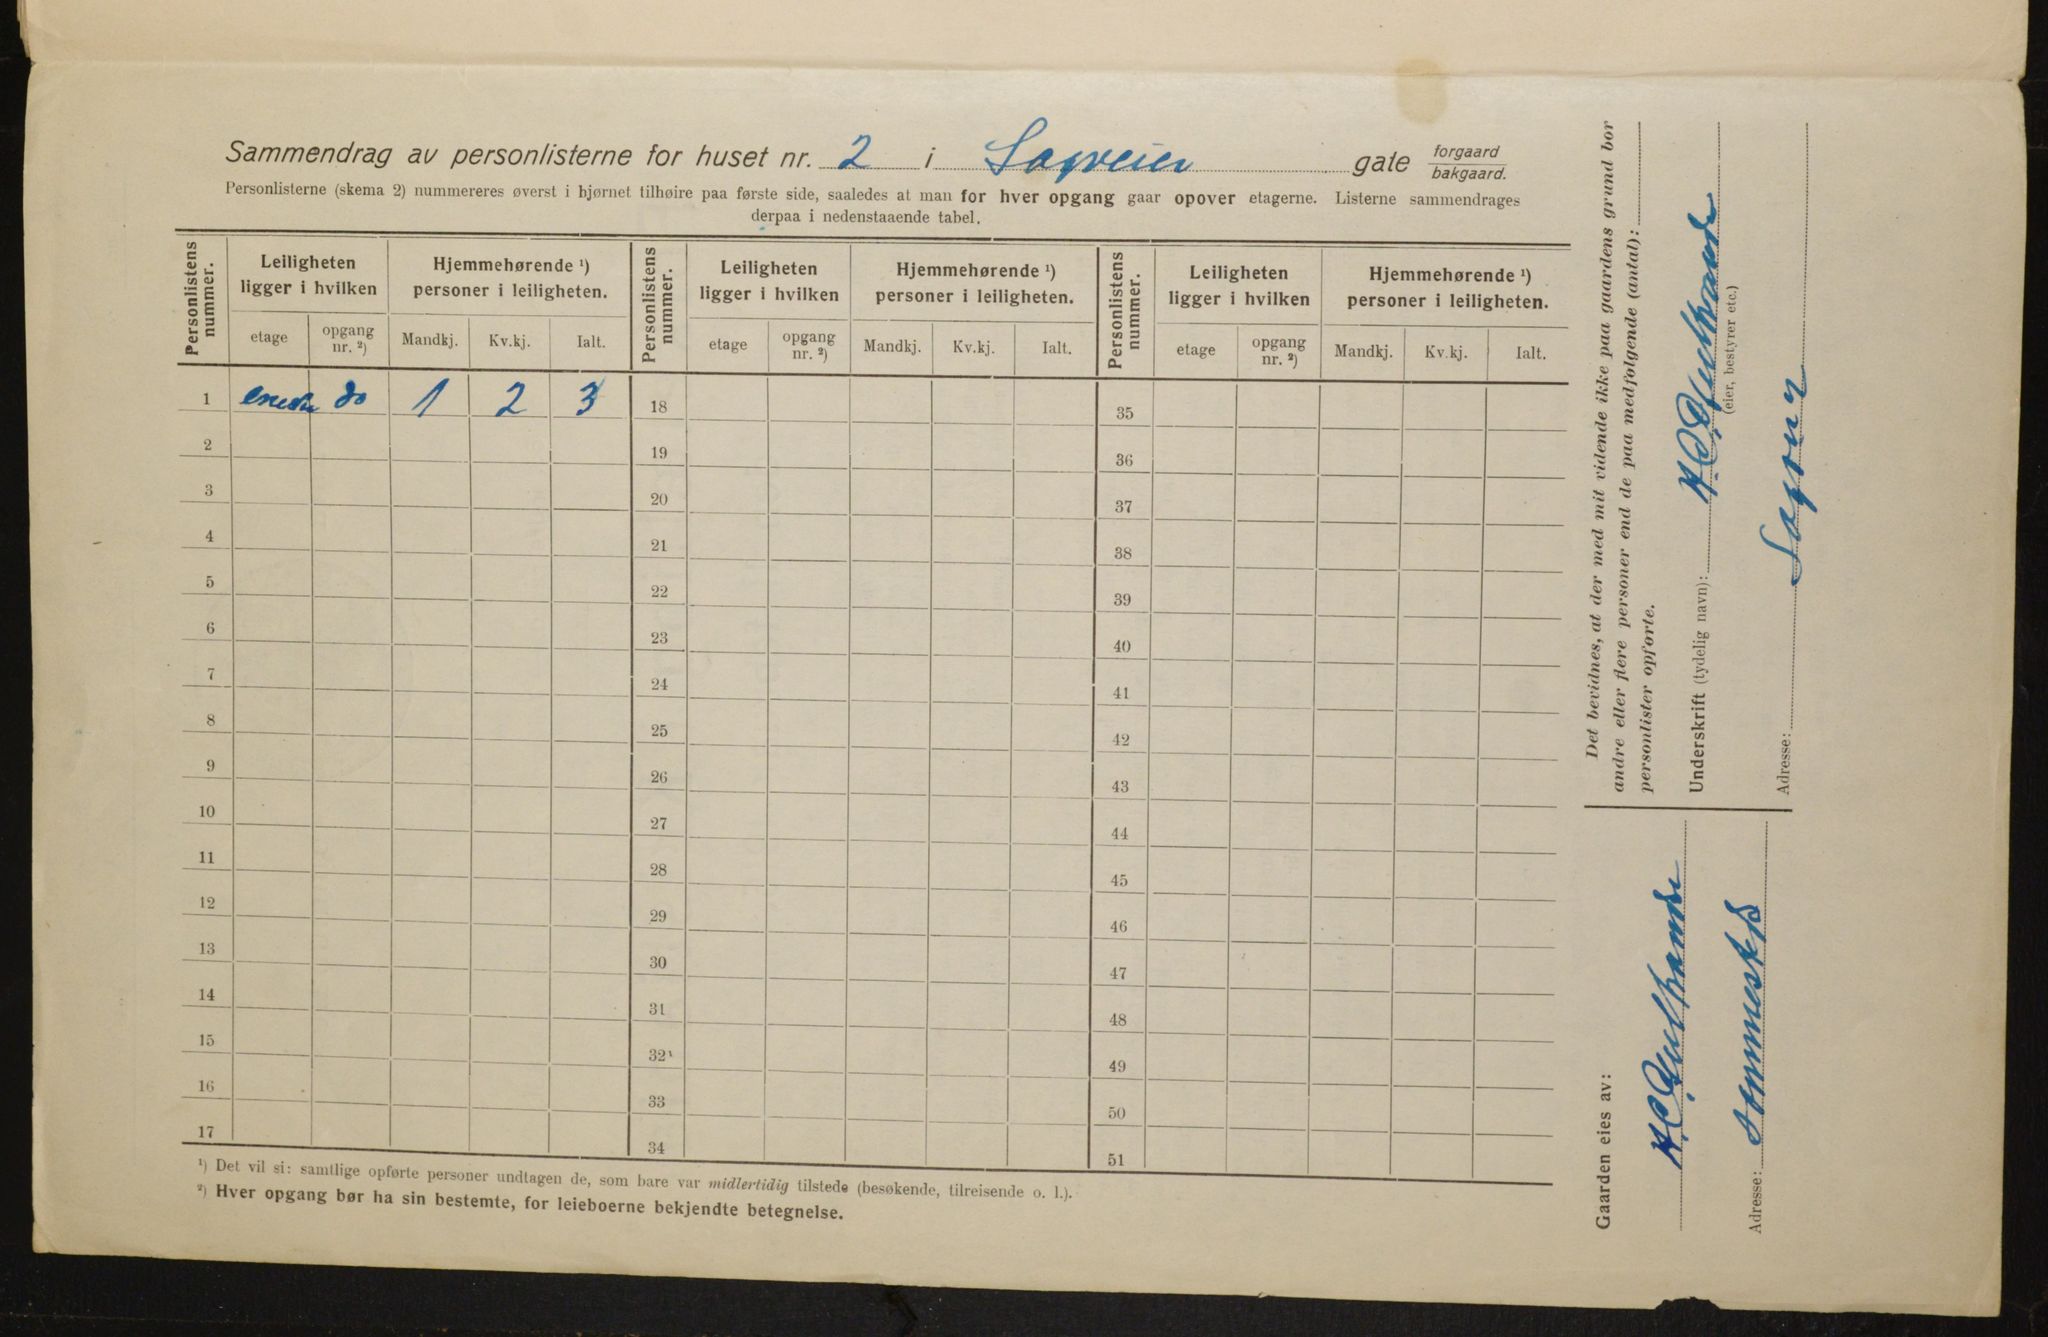 Sammendrag av personlisterne for huset nr. 2 i Sagveien gate forgaard bakgaard.
Personlisterne (skema 2) nummereres øverst i hjørnet tilhøire paa første side, saaledes at man for hver opgang gaar opover etagerne. Listerne sammendrages
derpaa i nedenstaaende tabel.
Personlistens nummer. Leiligheten ligger i hvilken Hjemmehørende ¹) personer i leiligheten. Personlistens nummer. Leiligheten ligger i hvilken Hjemmehørende ¹) personer i leiligheten. Personlistens nummer. Leiligheten ligger i hvilken Hjemmehørende ¹) personer i leiligheten.
etage opgang nr. ²) Mandkj. Kv.kj. Ialt. etage opgang nr. ²) Mandkj. Kv.kj. Ialt. etage opgang nr. ²) Mandkj. Kv.kj. Ialt.
1 eneste do 1 2 3 18 35
2 19 36
3 20 37
4 21 38
5 22 39
6 23 40
7 24 41
8 25 42
9 26 43
10 27 44
11 28 45
12 29 46
13 30 47
14 31 48
15 32 49
16 33 50
17 34 51
¹) Det vil si: samtlige opførte personer undtagen de, som bare var midlertidig tilstede (besøkende, tilreisende o. l.).
²) Hver opgang bør ha sin bestemte, for leieboerne bekjendte betegnelse.
Det bevidnes, at der med mit vidende ikke paa gaardens grund bor
andre eller flere personer end de paa medfølgende (antal):
personlister opførte.
Underskrift (tydelig navn):
(eier, bestyrer etc.)
Adresse:
Gaarden eies av:
Adresse: